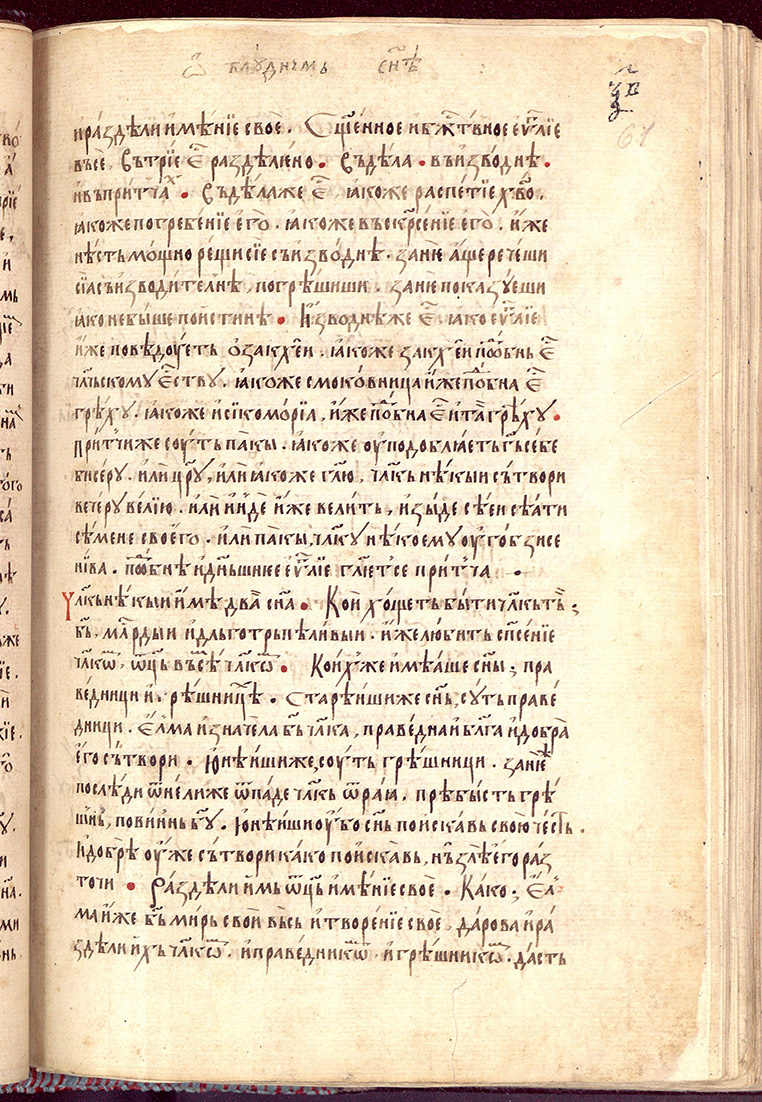 ѿ блꙋднѣмь сн҃ѣ
67
и҆раздѣли имѣнїе своѐ . Сщ҃е́нное и҆бж҃тв́ное еѵⷢ҇лїе
въсѐ , въ трїѐ еⷭ҇ раздѣлѥно . въдѣла . въи҆зво́днѣ .
и҆въпри́тчаⷯ . въдѣ́лаже еⷭ҇ ꙗ҆коже распе́тїе хв҃о .
ꙗ҆коже погребе́нїе его̀ . ꙗ҆коже въскрⷭ҇е́нїе его̀ . и҆́же
нѣ́сть мо́щно рещи сїѐ съи҆зво́днѣ . занѐ а҆́щерече́ши
сїа̀ съи҆зводи́телнѣ , погрѣшиши . занѐ показꙋ́еши
ꙗ҆ко не бы́ше пои́стинѣ . И҆зво́днѣже еⷭ҇ ꙗ҆ко еѵⷢ҇лїе
и҆́же повѣ́доуеть ѻ҆закхе́и . ꙗ҆коже закхе́и поⷣбнь еⷭ҇
чл҃чьскомꙋ еⷭ҇ствꙋ . ꙗ҆коже смоко́вница и҆́же поⷣбна еⷭ҇
грѣхꙋ̀ . ꙗ҆коже и҆си́комо́рїа , и҆́же поⷣбна еⷭ҇ и҆та̀ грѣ́хꙋ .
при́тчиже соу́ть па́кы . ꙗ҆коже оу҆подоблꙗ́еть гь҃ себе
би́серꙋ . и҆лѝ цр҃ꙋ̀ , и҆лѝ ꙗ҆коже гл҃ю , чл҃кь нѣ́кыи сътвори
вече́рꙋ ве́лїю . и҆лѝ и҆́ндѐ и҆́же вели́ть , и҆зы́де сѣ́еи сѣ́ати
сѣ́мене своего̀ . и҆лѝ па́кы , чл҃кꙋ нѣ́коемꙋ оу҆гобзи се
ни́ва . поⷣбнѣ и҆дн҃ьшнее еѵⷢ҇лїе гл҃ет́се при́тча .
Чл҃кь нѣ́кыи и҆́мѣ два̀ сн҃а . Кой хо́щеть быти чл҃кь тъ̀ ;
бь҃ , млⷭ҇рдыи и҆дльготрьпѣли́выи . и҆́же лю́бить спⷭ҇е́нїе
чл҃кѡⷨ , ѡц҃ь въсѣ́ чл҃кѡⷨ . Кои́хже и҆мѣ́аше сн҃ы ; пра
ве́дници и҆ грѣшницѐ . Старѣ́ишиже сн҃ь , сꙋ́ть праве́
дници . Е҆лма и҆знача́ла бь҃ чл҃ка , праве́дна и҆бл҃га и҆добра̀
е҆го сътвори . Ю҆нѣ́ишиже , соу́ть грѣ́шници . занѐ
послѣ́ди ѿне́лиже ѿпаде чл҃кь ѿра́ꙗ . прѣбы́сть грѣ́
шнь , пови́н́нь бг҃ꙋ . Ю҆нѣ́иши оу҆́бо сн҃ь пои́скавь свою́ че́сть .
И҆добрѣ̀ оу҆́же сътвори како пои́скавь , нъ злѣ̀ его раз
точи . Раздѣли и҆мь ѡц҃ь и҆мѣ́нїе своѐ . Како ; Е҆л
ма и҆́же бь҃ мирь свои́ вьсь и҆творе́нїе своѐ , дарова и҆ра
здѣли и҆́хъ чл҃кѡⷨ . и҆праве́дникѡⷨ . и҆грѣ́шникѡⷨ . да́сть